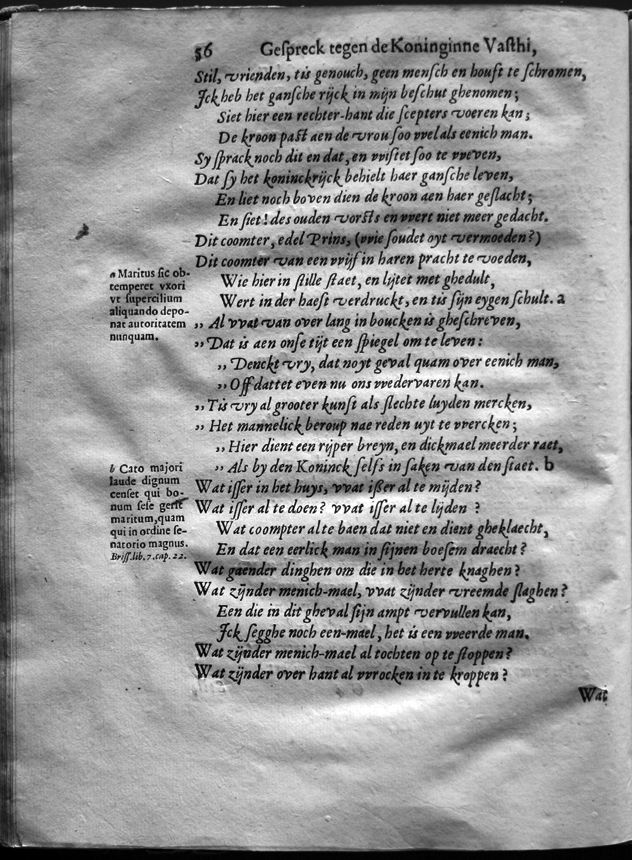 56 Gespreck tegen de Koninginne Vasthi,
Stil, vrienden, tis genouch, geen mensch en houft te schromen,
Jck heb het gansche rijck in mijn beschut ghenomen;
Siet hier een rechter-hant die scepters voeren kan;
De kroon past aen de vrou soo wel als eenich man.
Sy sprack noch dit en dat, en wistet soo te weven,
Dat sy het koninckrijck behielt haer gansche leven,
En liet noch boven dien de kroon aen haer geslacht;
En siet! des ouden vorsts en wert niet meer gedacht.
Dit coomter, edel Prins, (wie soudet oyt vermoeden?)
Dit coomter van een wijf in haren pracht te voeden,
Wie hier in stille staet, en lijtet met ghedult,
Wert in der haest verdruckt, en tis sijn eygen schult. a
„ Al wat van over lang in boucken is gheschreven,
„ Dat is aen onse tijt een spiegel om te leven:
„ Denckt vry, dat noyt geval quam over eenich man,
„ Off dattet even nu ons wedervaren kan.
„ Tis vry al grooter kunst als slechte luyden mercken,
„ Het mannelick beroup nae reden uyt te wercken;
„ Hier dient een rijper breyn, en dickmael meerder raet,
„ Als by den Koninck selfs in saken van den staet. b
Wat isser in het huys, wat isser al te mijden?
Wat isser al te doen? wat isser al te lijden?
Wat coompter al te baen dat niet en dient gheklaecht,
En dat een eerlick man in sijnen boesem draecht?
Wat gaender dinghen om die in het herte knaghen?
Wat zijnder menich-mael, wat zijnder vreemde slaghen?
Een die in dit gheval sijn ampt vervullen kan,
Jck segghe noch een-mael, het is een weerde man.
Wat zijnder menich-mael al tochten op te stoppen?
Wat zijnder over hant al wrocken in te kroppen?
Wat
a Maritus sic ob-
temperet vxori
vt supercilium
aliquando depo-
nat autoritatem
nunquam.
b Cato majori
laude dignum
censet qui bo-
num sese gerit
maritum, quam
qui in ordine se-
natorio magnus.
Briss. lib. 7. cap. 22.